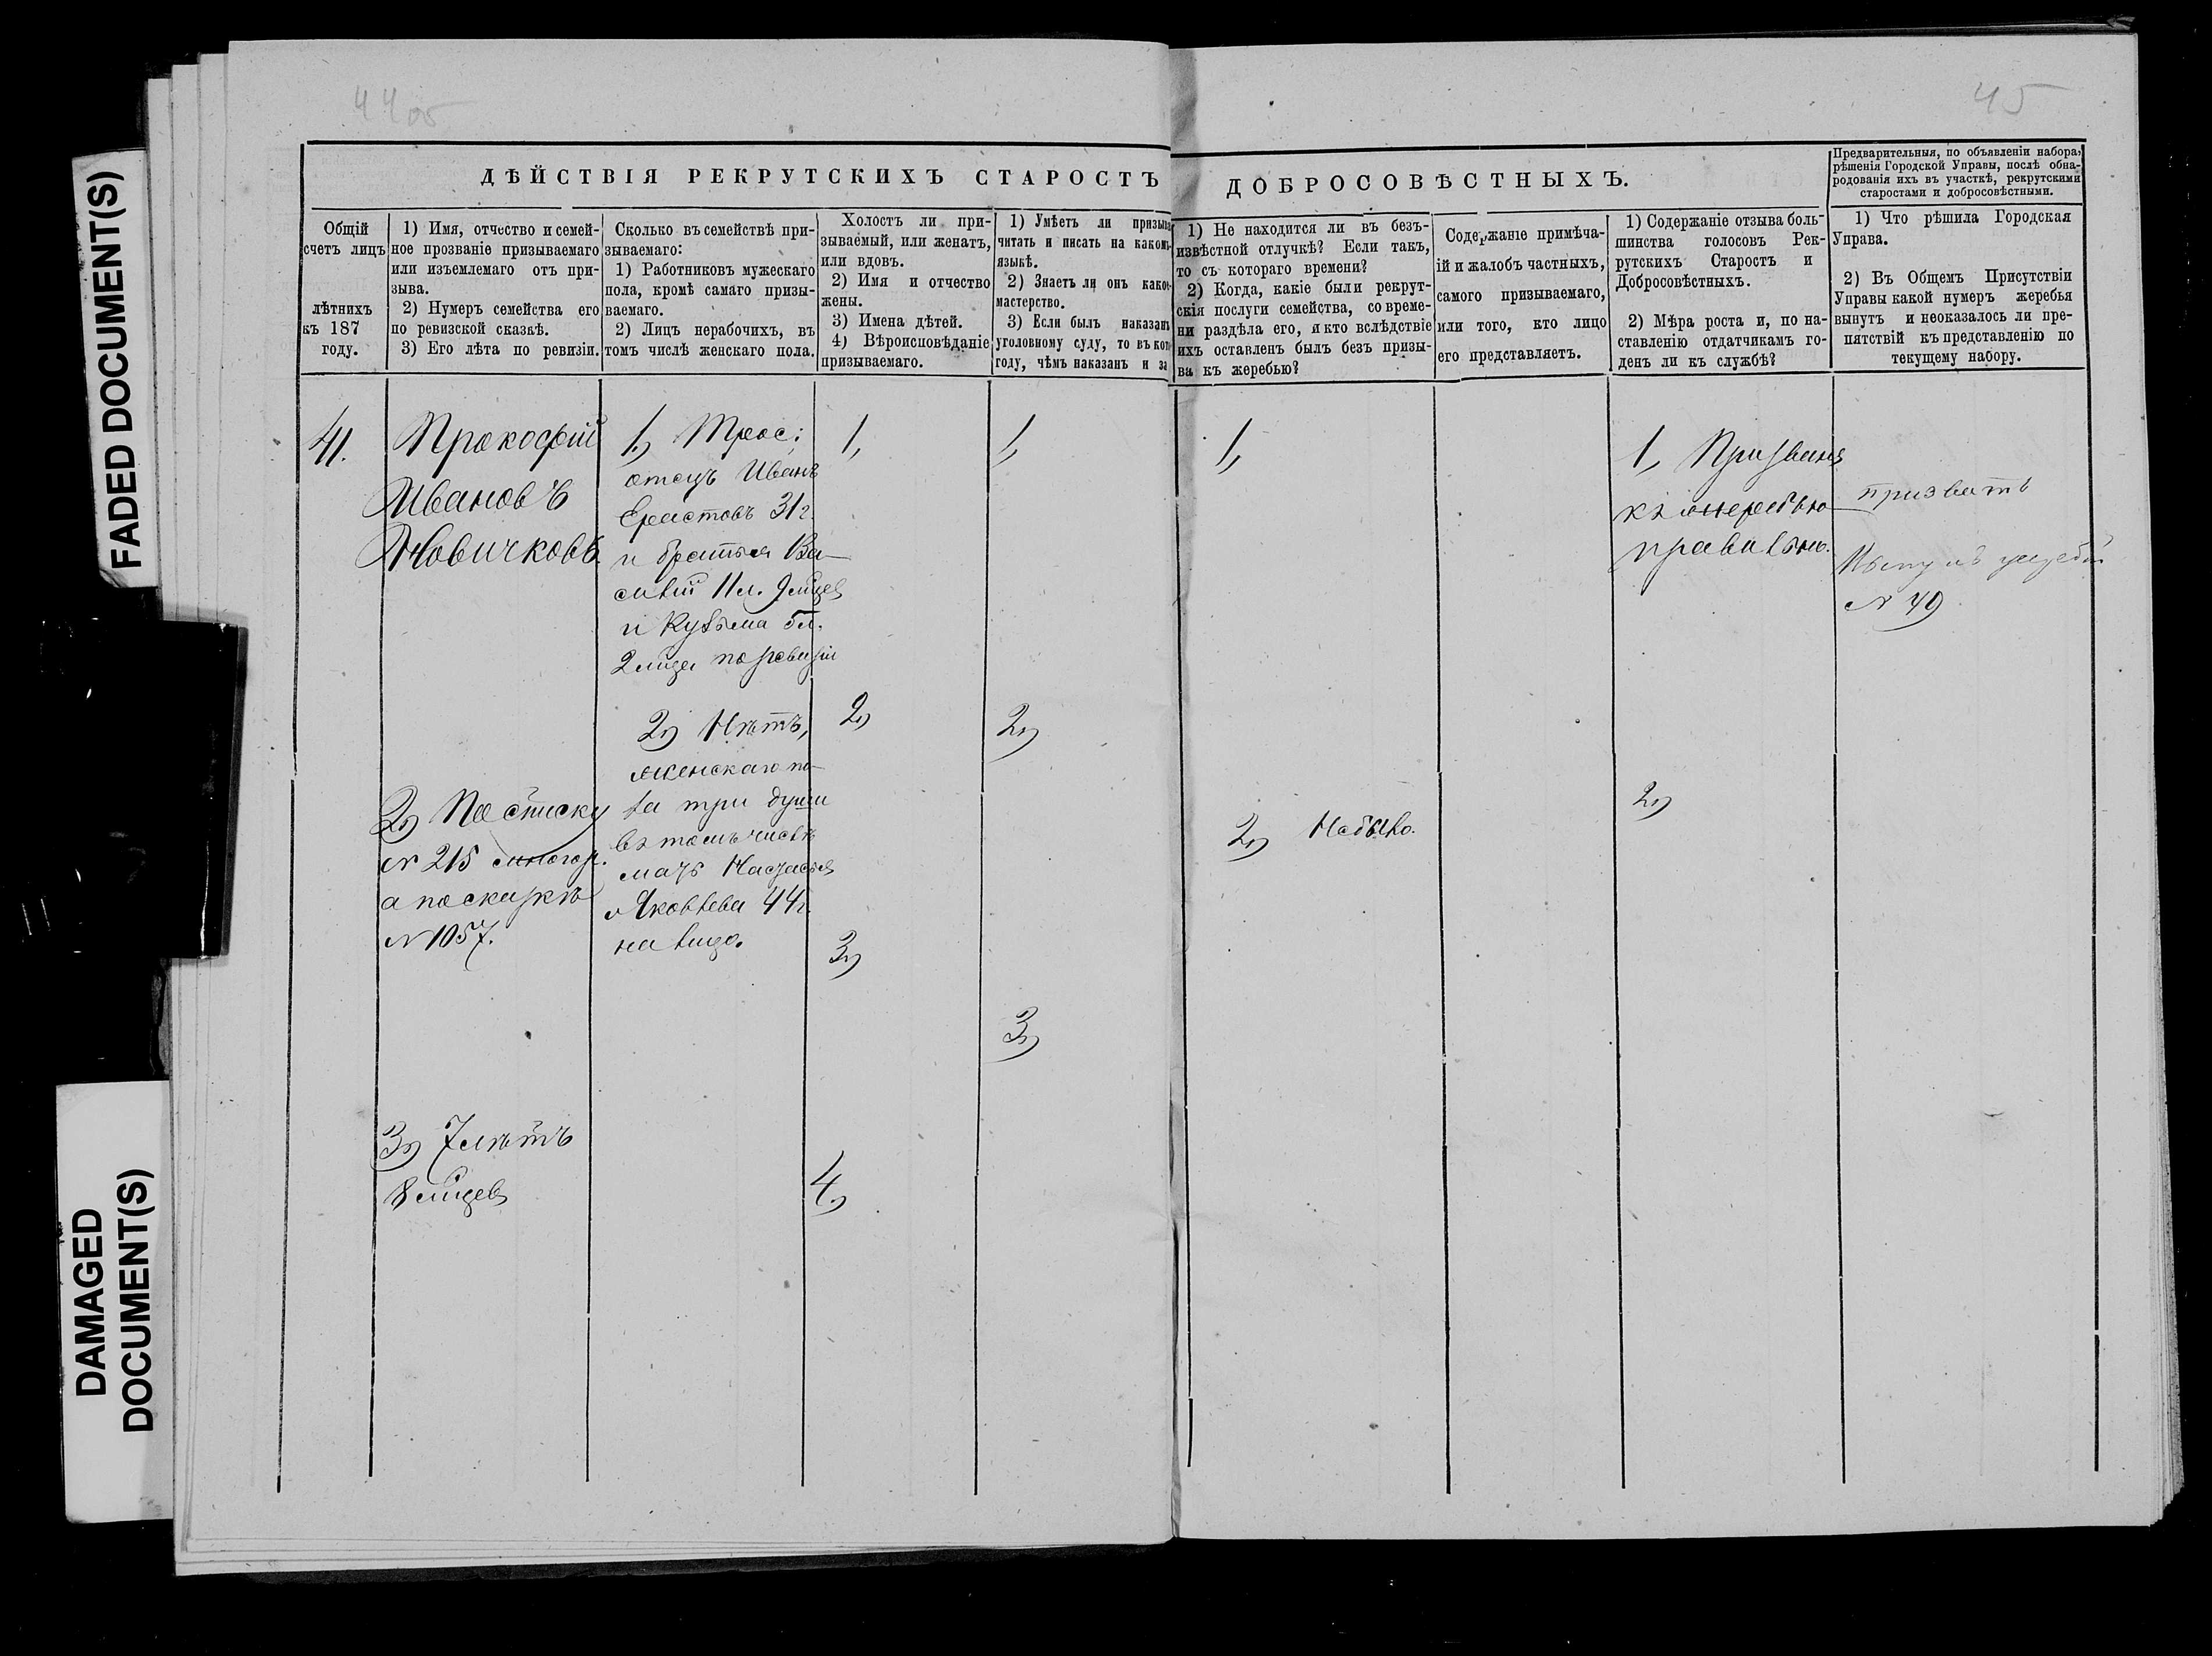 44об
45
FADED DOCUMENT(S)
DAMAGED
DOCUMENT(S)
ДѢЙСТВІЯ РЕКРУТСКИХЪ СТАРОСТЪ
ДОБРОСОВѢСТНЫХЪ.
Предварительныя, по объявленіи набора,
рѣшенія Городской Управы, послѣ обна-
родованія ихъ въ участкѣ, рекрутскими
старостами и добросовѣстными.
Общій
счетъ лицъ
лѣтнихъ
къ 187
году.
1) Имя, отчество и семей-
ное прозваніе призываемаго
или изъемлемаго отъ при-
зыва.
2) Нумеръ семейства его
по ревизской сказкѣ.
3) Его лѣта по ревизіи.
Сколько въ семействѣ при-
зываемаго:
1) Работниковъ мужескаго
пола, кромѣ самаго призы-
ваемаго.
2) Лицъ нерабочихъ, въ
томъ числѣ женскаго пола.
Холостъ ли при-
зываемый, или женатъ,
или вдовъ.
2) Имя и отчество
жены.
3) Имена дѣтей.
4) Вѣроисповѣданіе
призываемаго.
1) Умѣетъ ли призыва
читать и писать на какомъ
языкѣ.
2) Знаетъ ли онъ какое
мастерство.
3) Если былъ наказанъ
уголовному суду, то въ кот
году, чѣмъ наказанъ и за
1) Не находится ли въ безъ-
извѣстной отлучкѣ? Если такъ,
то съ котораго времени?
2) Когда, какіе были рекрут-
скія послуги семейства, со време-
ни раздѣла его, и кто вслѣдствіе
ихъ оставленъ былъ безъ призы-
ва къ жеребью?
Содержаніе примѣча-
ій и жалобъ частныхъ,
самого призываемаго,
или того, кто лицо
его представляетъ.
1) Содержаніе отзыва боль-
шинства голосовъ Рек-
рутскихъ Старостъ и
Добросовѣстныхъ.
2) Мѣра роста и, по на-
ставленію отдатчикамъ го-
денъ ли къ службѣ?
1) Что рѣшила Городская
Управа.
2) Въ Общемъ Присутствіи
Управы какой нумеръ жеребья
вынутъ и неоказалось ли пре-
пятствій къ представленію по
текущему набору.
41.
Прокофій
Ивановъ
Новичковъ.
2) По списку
N 215
а по сказкѣ
N 1057.
3) 7 лѣтъ
8 мцев
1) Трое:
отецъ Иванъ
Ерастовъ 31 г.
и братья Ва-
силій 11 л. 9 мцев
и Кузьма 5 л.
2 мца по ревизіи
2) Нѣтъ,
женскаго по-
ла три души
въ томъ числѣ
мать Настасья
Яковлева 44 г.
на лицо.
1,
2)
3)
4)
1,
2)
3)
1,
2) Небыло.
1, Призванъ
къ жеребью
правильно.
2)
призвать
Вынулъ жребій
N 49